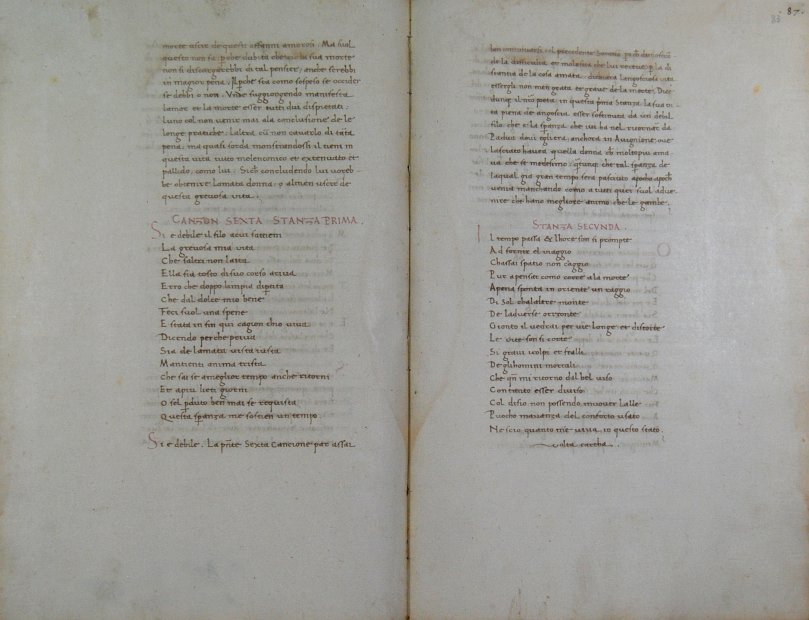 morte uscir de questi affanni amorosi. Ma suol
questo non sia, pche dubita che cola sua morte
non si discargarebbi di tal pensier, anche serebbi
in magior pena. Il pche sta como sospeso se occider
se debbi o non. Vnde suggiongendo manifesta
lamor et la morte esser tutti dui dispietati.
luno col non venir mai ala conclusione de le
longe pratiche. Laltra cu non cavarlo di tata
pena, ma quasi sorda monstrandosi il tien in
questa vita tutto melenconico et extenuato et
pallido, como lui. Sich concludendo lui voreb-
be obtener lamata donna, o almen uscir de
questa grevosa vita.
CANZON SEXTA STANZA PRIMA.
Si e debile il filo acui sattien
La grevosa mia vita
Che saltri non laita
Ella fia tosto di suo corso ariva
Ero che doppo lampia dipita
Che dal dolce mio bene
Feci suol una spene
E stata in fin qui cagion chio viva
Dicendo perche priva
Sia de lamata vista vista
Mantienti anima trista
Che sai se ameglior tempo anche ritorni
Et apiu lieti giorni
O sel pduto ben mai se requista
Questa spanza me sostien un tempo
Si e debile. La pnte Sexta Cancione par assai
ben continuarsi col precedente Sonetto
87.
83
di stantia de la cosa amata, durava langosciosa vita
essergli non men grata et grave de la morte. Dice
dunq il nro poeta in questa pma Stanza. la sua vi
ta piena de angoscia esser sostenuta da un debil
filo. che e la spanza che lui ha nel ritornar da
Padua dovi egli era, anchora in Avignione, ove
lassato havea quella donna che moltopiu ama
va che se medesimo. qtunq che tal spanza de
laqual gia gran tempo sera pasciuto apocho apoch
venia manchando como a tutti quei suol adve-
nire che hano megliore animo che le gambe.
STANZA SECVNDA.
Il tempo passa & lhore son si prompte
Ad fornir el viaggio
Chassai spatio non caggio
Pur apensar como corro ala morte
Apena sponta in oriente un raggio
Di Sol chalaltro monte
De laduerso orizonte
Gionto il vedrai per vie longe et distorte
Le vite son si corte
Si gravi icorpi et frali
De glihomini mortali
Che qn mi ritorno dal bel viso
Con tanto esser diviso
Col disio non possendo mouer lalle
Puocho mavanza del conforto usato
Ne scio quanto me viva in questo stato.
volta cartha.